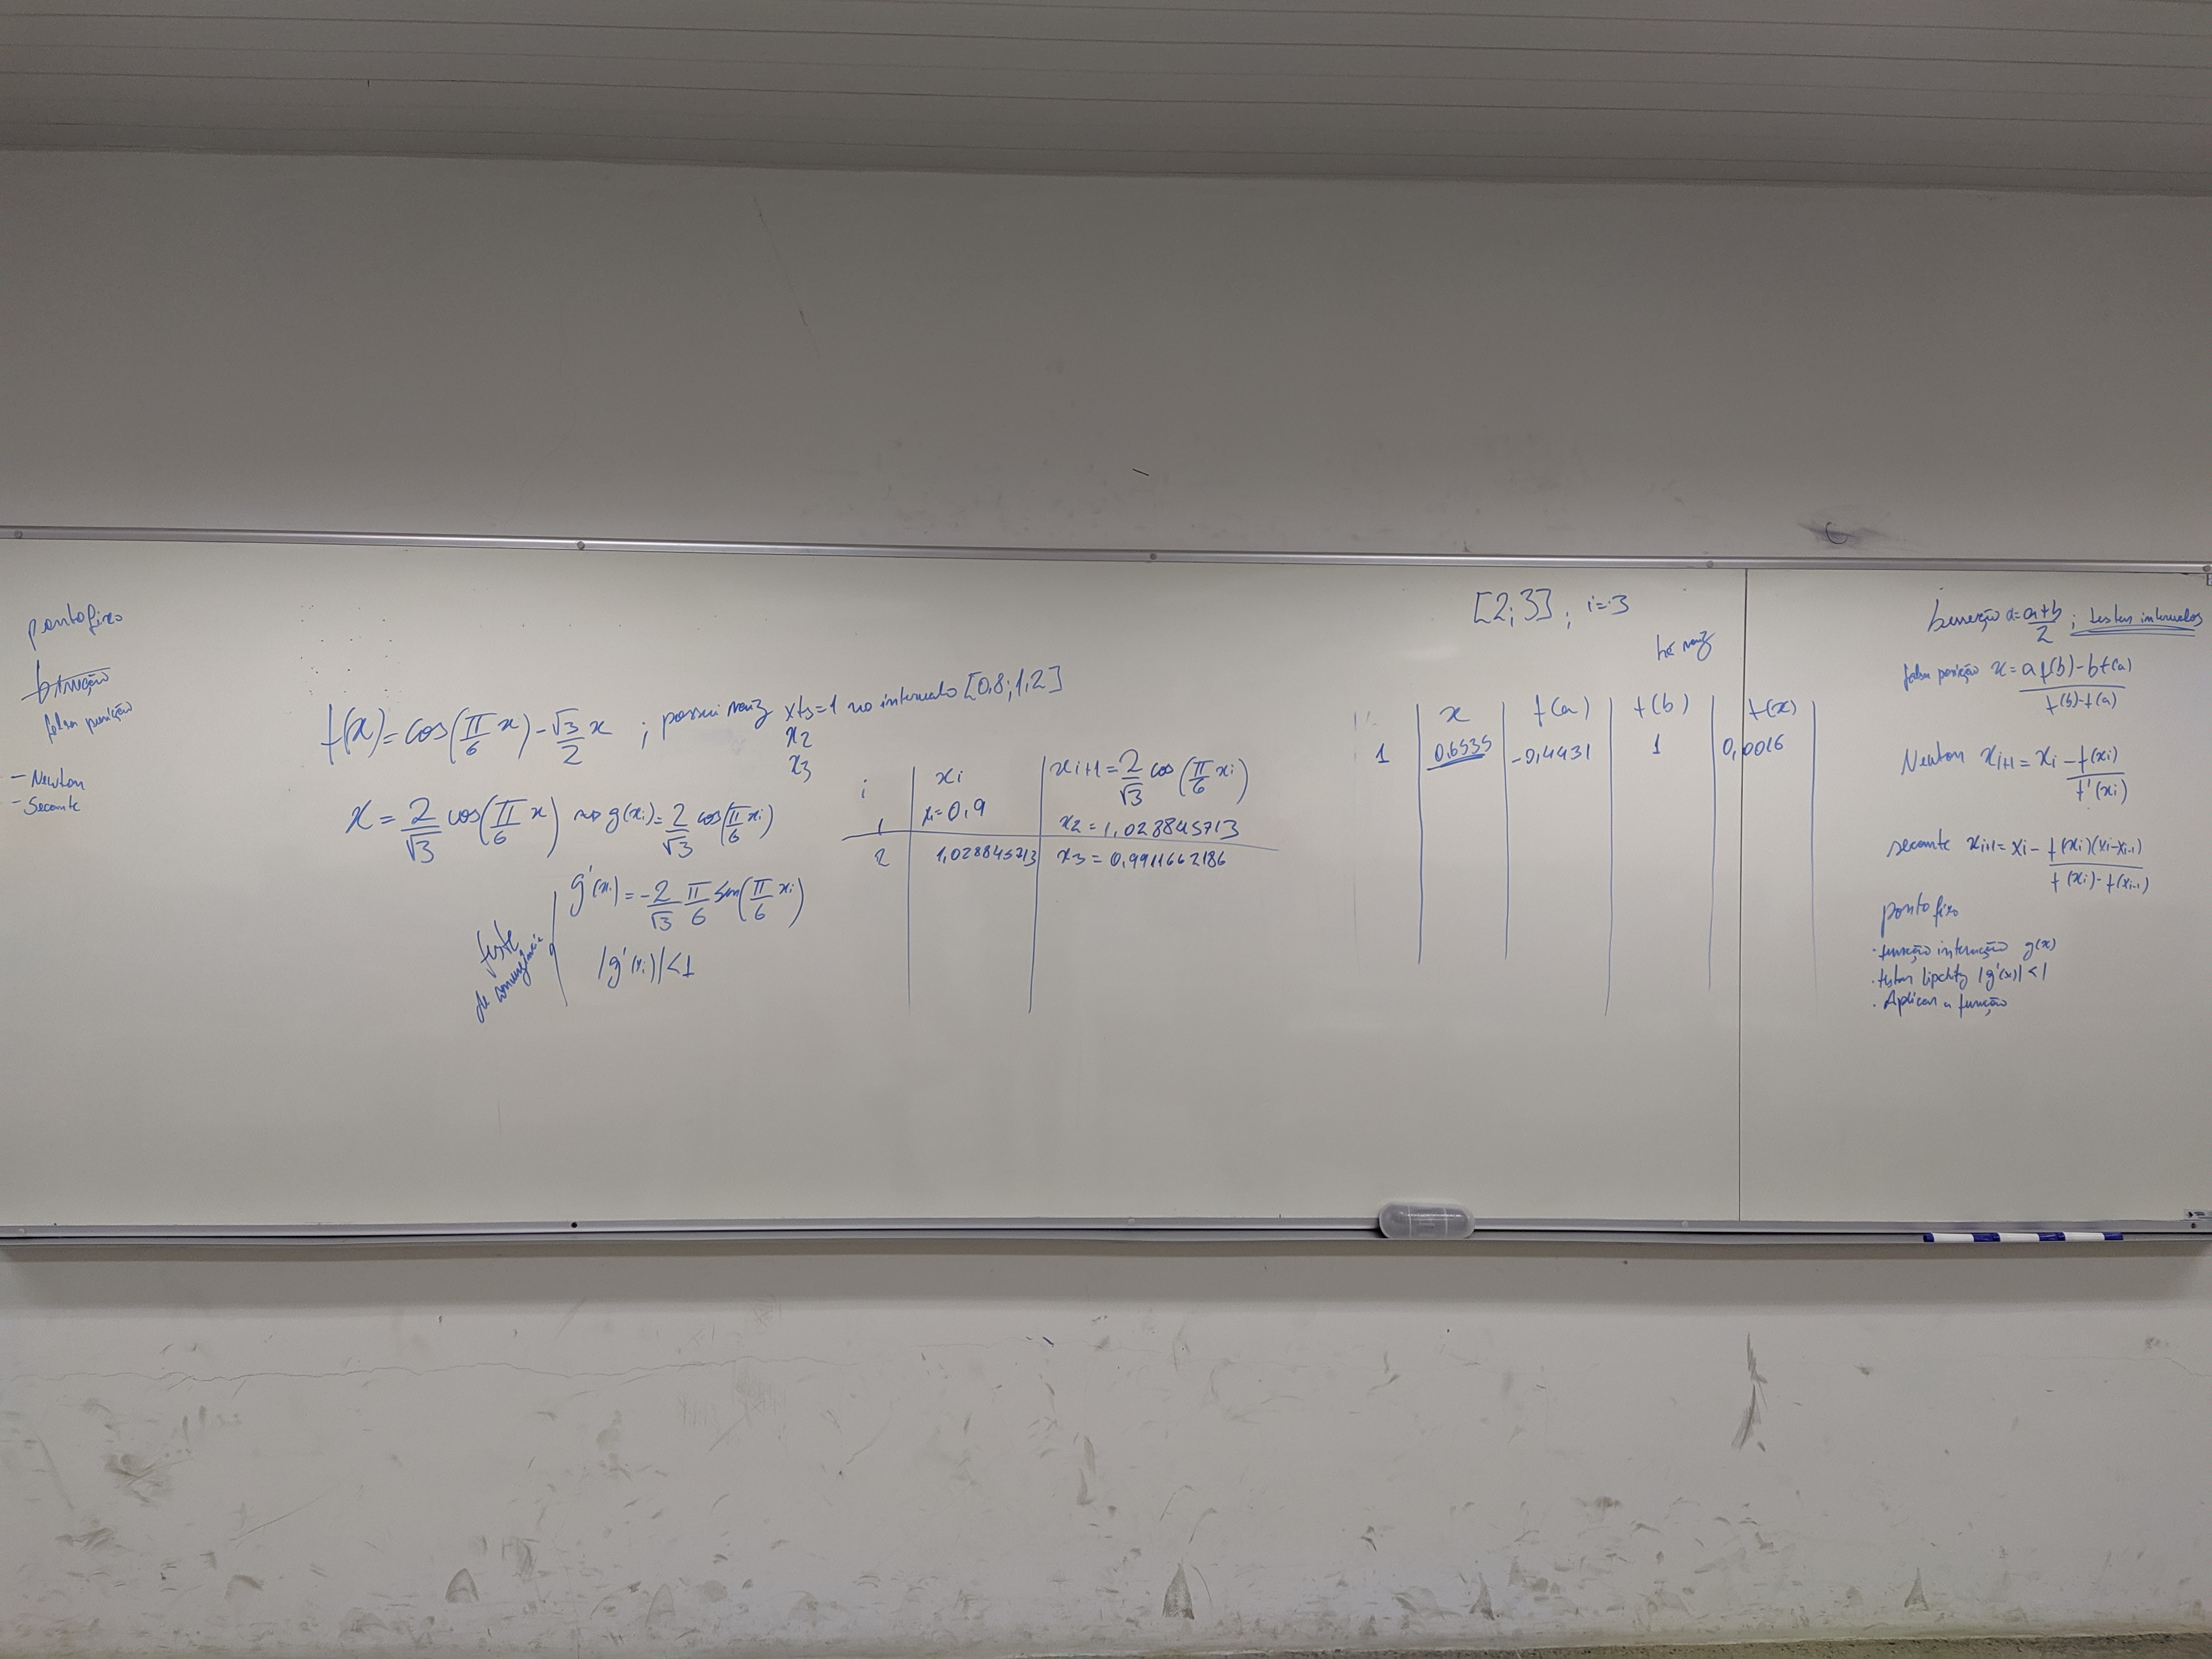 ponto fixo
falsa posição
- Newton
- Secante
f(x) = cos(π/6 x) - √3/2 x ; possui raiz x ts = 1 no intervalo [0,8; 1,2]
x2
x3
x = 2/√3 cos(π/6 x) ~> g(xi) = 2/√3 cos(π/6 xi)
g'(xi) = -2/√3 π/6 sen(π/6 xi)
teste de convergência
|g'(xi)| < 1
i | xi | xi+1 = 2/√3 cos(π/6 xi)
1 | x1=0,9 | x2 = 1,028845713
2 | 1,028845713 | x3 = 0,9911662186
[2; 3] ; i = 3
há raiz
x | f(a) | f(b) | f(x)
1 | 0,6535 | -0,4431 | 1 | 0,0016
bisseção x = a+b/2 ; testar intervalos
falsa posição x = a f(b) - b f(a) / f(b) - f(a)
Newton xi+1 = xi - f(xi)/f'(xi)
secante xi+1 = xi - f(xi)(xi-xi-1) / f(xi) - f(xi-1)
ponto fixo
· função interação g(x)
· testar lipchitz |g'(x)| < 1
· Aplicar a função